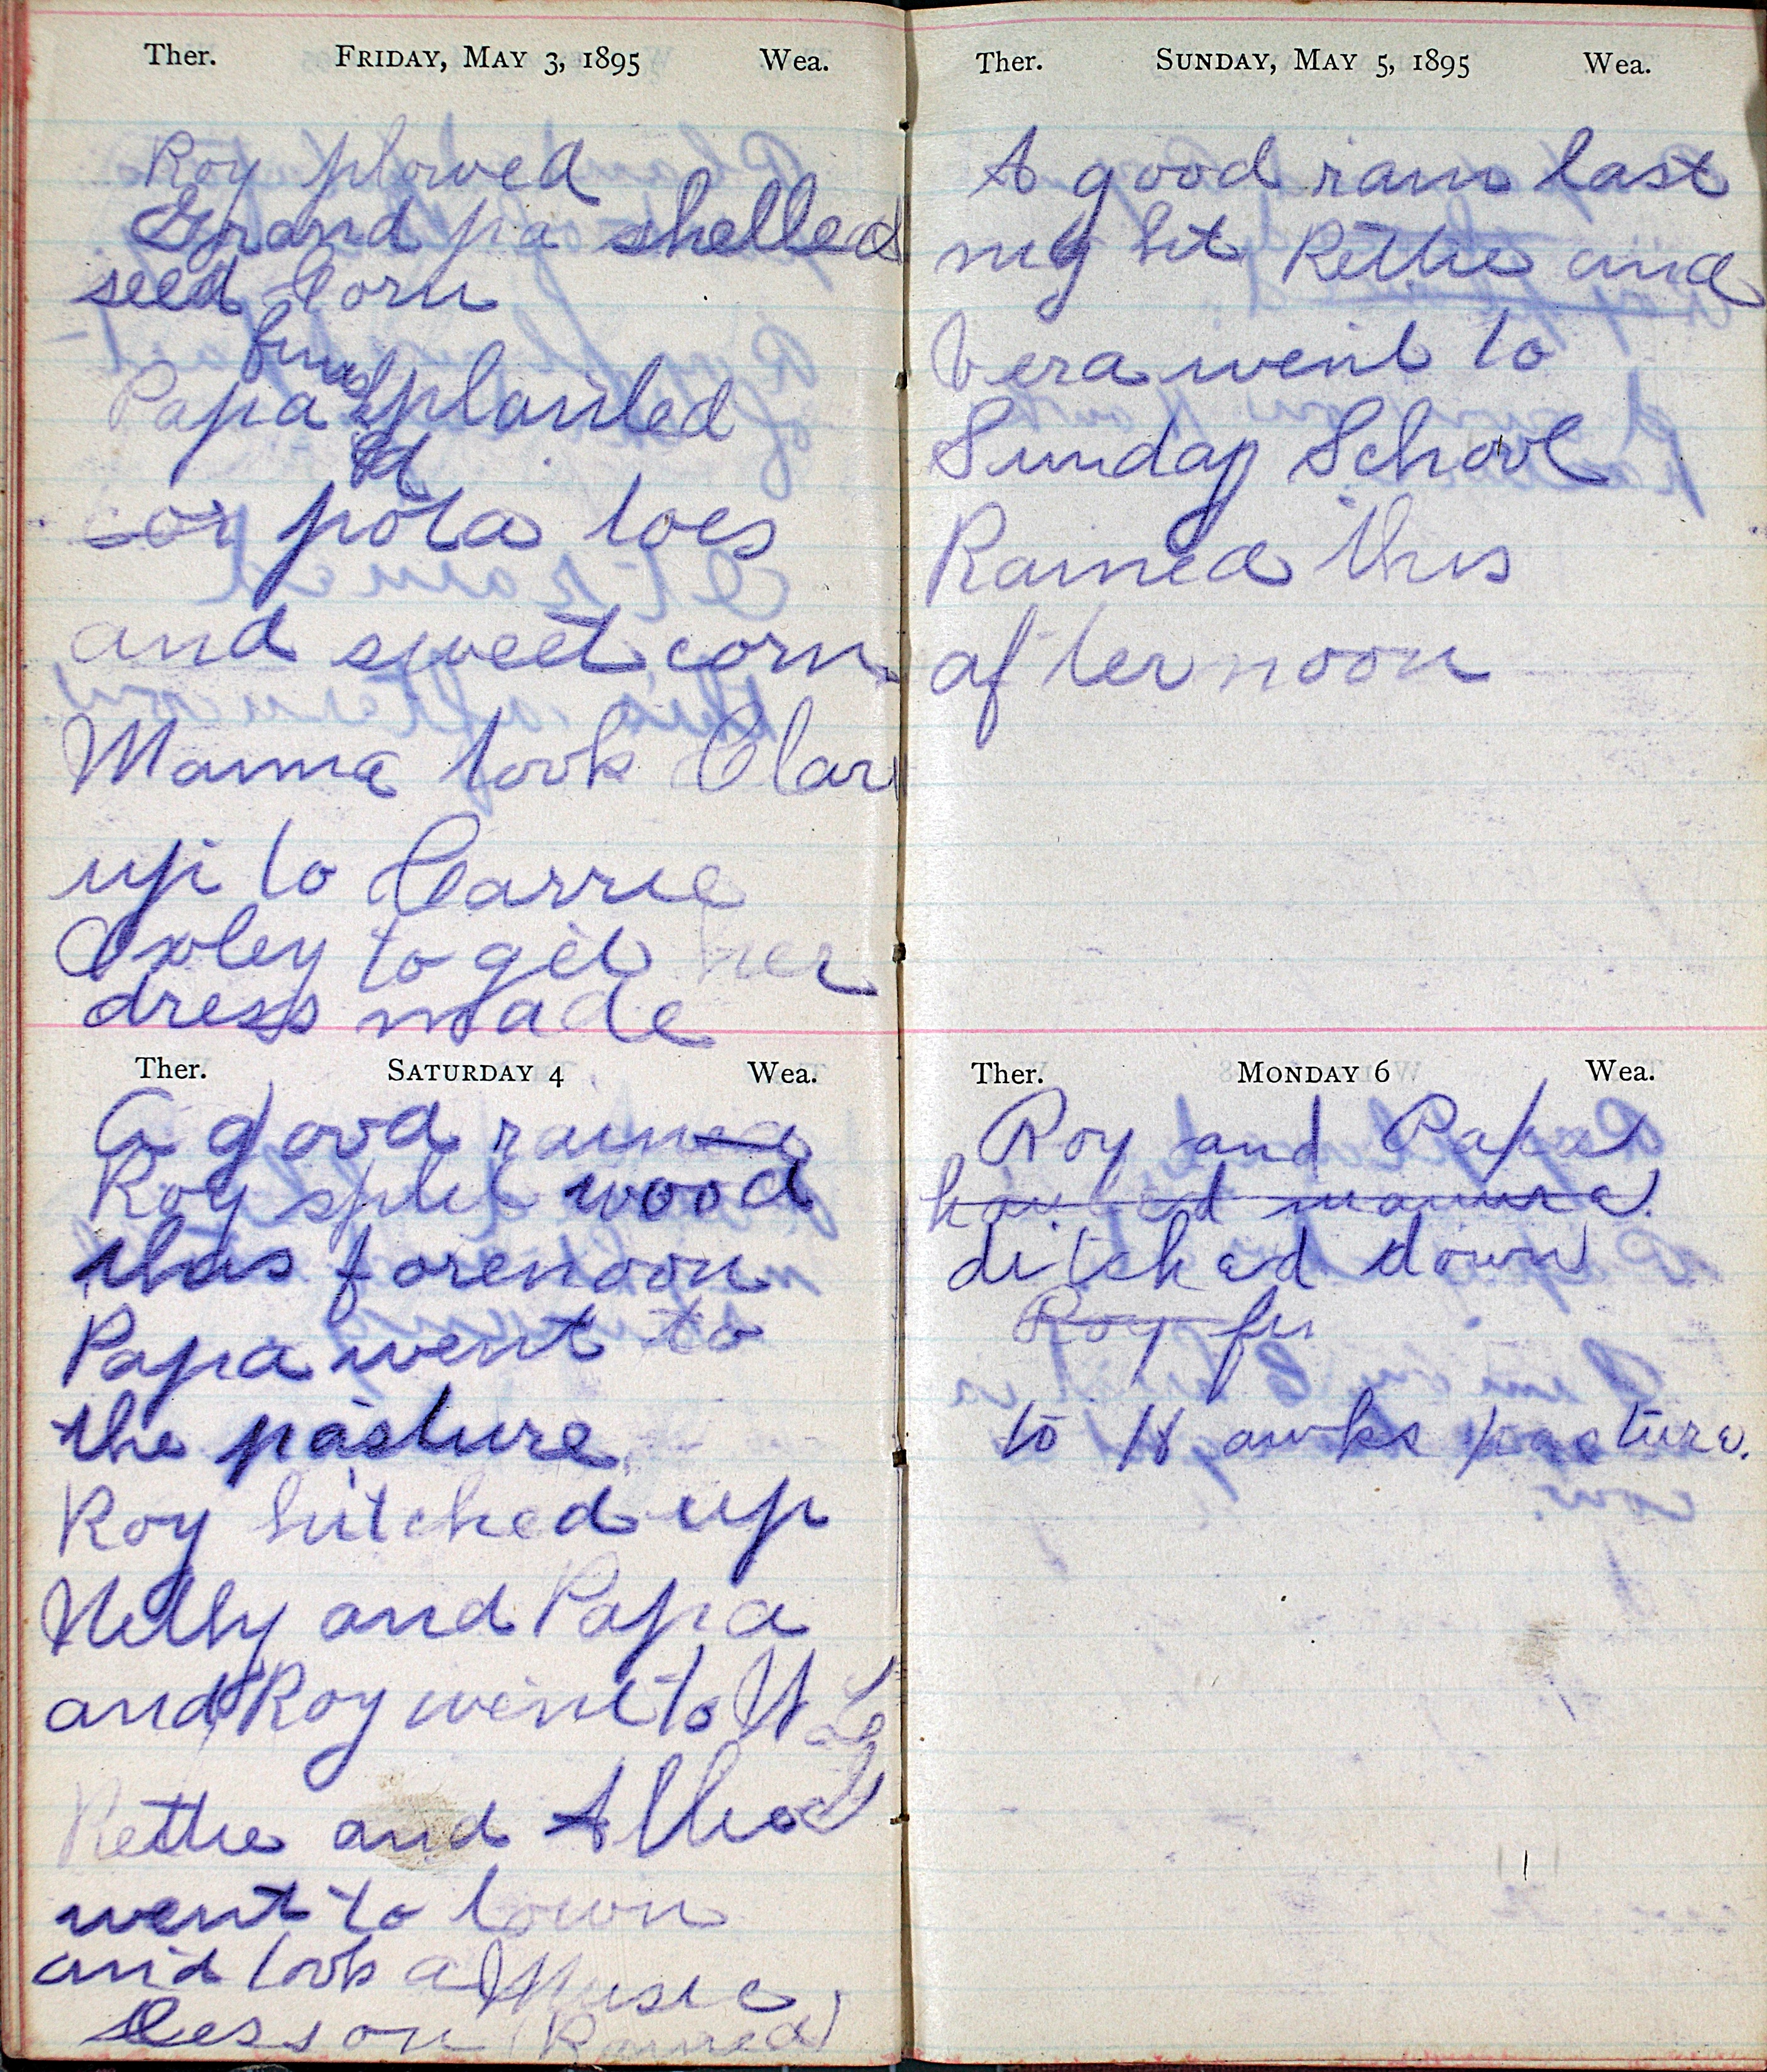 Ther. FRIDAY, MAY 3, 1895 Wea.
Roy plowed
Grand pa shelled
seed Corn
finis
Papa planted
ed
cor pota toes
and sweet corn
Mamma took Clar
up to Carrie
Oxley to get her
dress made
Ther. SATURDAY 4 Wea.
A good rained
Roy split wood
this forenoon
Papa went to
the pasture
Roy hitched up
Nelly and Papa
and Roy went to
Rettie and
went to town
and took a Music
Lesson (Rained)
Ther. SUNDAY, MAY 5, 1895 Wea.
A good rain last
nig ht Rettie and
Vera went to
Sunday School
Rained this
af ternoon
Ther. MONDAY 6 Wea.
Roy and Papa
hauled manure.
ditched down
Roy fin
to H awks pasture.